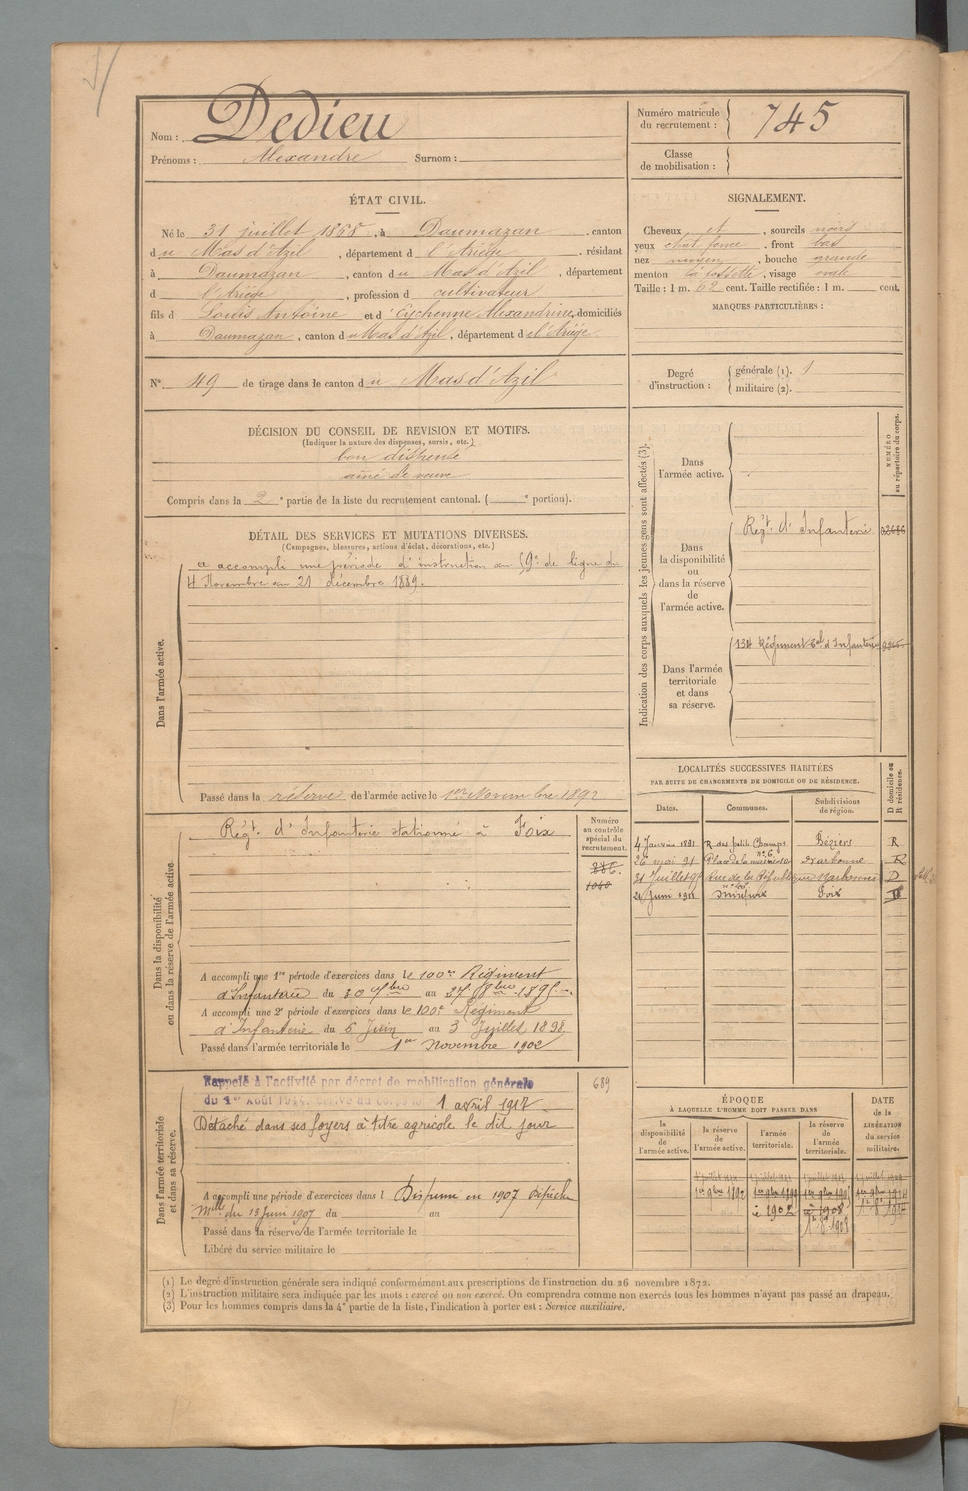 Nom : Dedieu
Prénoms : Alexandre Surnom :
Numéro matricule du recrutement : 745
Classe de mobilisation :
ÉTAT CIVIL.
Né le 31 juillet 1868, à Daumazan, canton
du Mas d'Azil, département de l'Ariège, résidant
à Daumazan, canton du Mas d'Azil, département
d l'Ariège, profession d cultivateur
fils d Louis Antoine et d' Eychenne Alexandrine, domiciliés
à Daumazan, canton du Mas d'Azil, département de l'Ariège.
N° 49 de tirage dans le canton du Mas d'Azil
SIGNALEMENT.
Cheveux et, sourcils noirs
yeux chât. foncé, front bas
nez moyen, bouche grande
menton à fossette, visage ovale
Taille : 1 m. 62 cent. Taille rectifiée : 1 m. cent.
MARQUES PARTICULIÈRES :
Degré d'instruction : générale (1). 1
militaire (2).
DÉCISION DU CONSEIL DE REVISION ET MOTIFS.
(Indiquer la nature des dispenses, sursis, etc.)
bon dispensé
aîné de veuve
Compris dans la 2e partie de la liste du recrutement cantonal. ( e portion).
DÉTAIL DES SERVICES ET MUTATIONS DIVERSES.
(Campagnes, blessures, actions d'éclat, décorations, etc.)
Dans l'armée active.
a accompli une période d'instruction au 59e de ligne du
4 Novembre au 21 décembre 1889.
Passé dans la réserve de l'armée active le 1er Novembre 1892
Indication des corps auxquels les jeunes gens sont affectés (3).
NUMÉRO au répertoire du corps.
Dans l'armée active.
Dans la disponibilité ou dans la réserve de l'armée active.
Régt. d'Infanterie
Dans l'armée territoriale et dans sa réserve.
134 Régiment Tal d'Infanterie
LOCALITÉS SUCCESSIVES HABITÉES
PAR SUITE DE CHANGEMENTS DE DOMICILE OU DE RÉSIDENCE.
Dates. Communes. Subdivisions de région. D domicile ou R résidence.
4 Janvier 1891 R des petits Champs n° 6 Béziers R
26 mai 91 Place de la Narbonne R
31 Juillet Rue de la République Narbonne D
21 Juin 1911 Foix
Dans la disponibilité ou dans la réserve de l'armée active.
Régt. d'Infanterie stationné à Foix
Numéro au contrôle spécial du recrutement.
1040
A accompli une 1re période d'exercices dans le 100e Régiment
d'Infanterie du 30 7bre au 27 8bre 1895
A accompli une 2e période d'exercices dans le 100e Régiment
d'Infanterie du 6 Juin au 3 Juillet 1898.
Passé dans l'armée territoriale le 1er Novembre 1902
Dans l'armée territoriale et dans sa réserve.
Rappelé à l'activité par décret de mobilisation générale
du 1er Août 1914. Arrivé au corps le 1 avril 1917
689
Détaché dans ses foyers à titre agricole le dit jour
A accompli une période d'exercices dans l Dispensé en 1907 Dépêche
Mlle du 13 Juin 1907 du au
Passé dans la réserve de l'armée territoriale le
Libéré du service militaire le
ÉPOQUE
À LAQUELLE L'HOMME DOIT PASSER DANS
la disponibilité de l'armée active. la réserve de l'armée active. l'armée territoriale. la réserve de l'armée territoriale.
DATE de la LIBÉRATION du service militaire.
1er 9bre 1892 1er 9bre 1899
1902 1908
(1) Le degré d'instruction générale sera indiqué conformément aux prescriptions de l'instruction du 26 novembre 1872.
(2) L'instruction militaire sera indiquée par les mots : exercé ou non exercé. On comprendra comme non exercés tous les hommes n'ayant pas passé au drapeau.
(3) Pour les hommes compris dans la 4e partie de la liste, l'indication à porter est : Service auxiliaire.